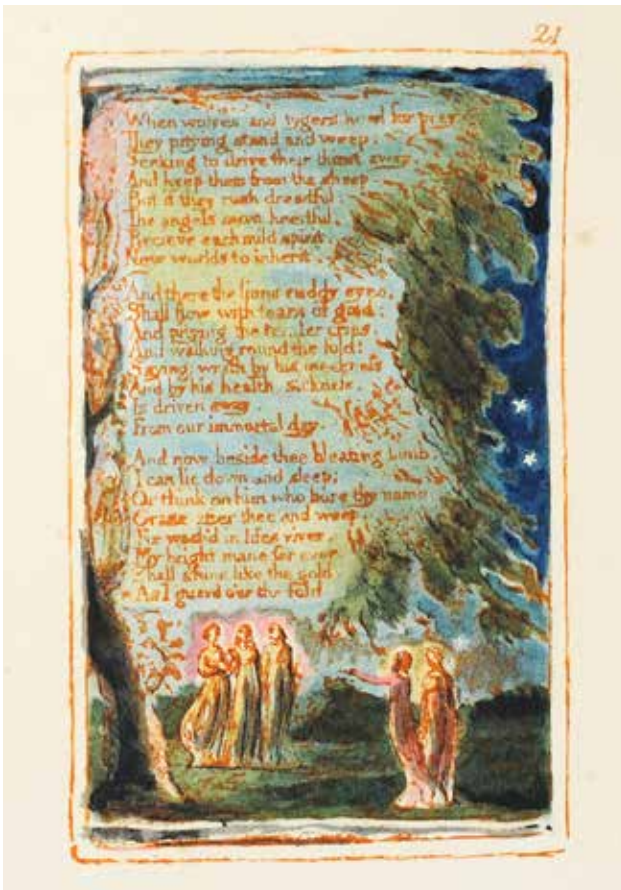 21
When wolves and tygers howl for prey
They pitying stand and weep;
Seeking to drive their thirst away,
And keep them from the sheep,
But if they rush dreadful;
The angels most heedful,
Recieve each mild spirit,
New worlds to inherit.
And there the lions ruddy eyes,
Shall flow with tears of gold:
And pitying the tender cries,
And walking round the fold:
Saying, wrath by his meekness
And by his health, sickness,
Is driven away,
From our immortal day.
And now beside thee bleating lamb,
I can lie down and sleep;
Or think on him who bore thy name
Graze after thee and weep.
For wash'd in lifes river,
My bright mane for ever,
Shall shine like the gold,
As I guard o'er the fold